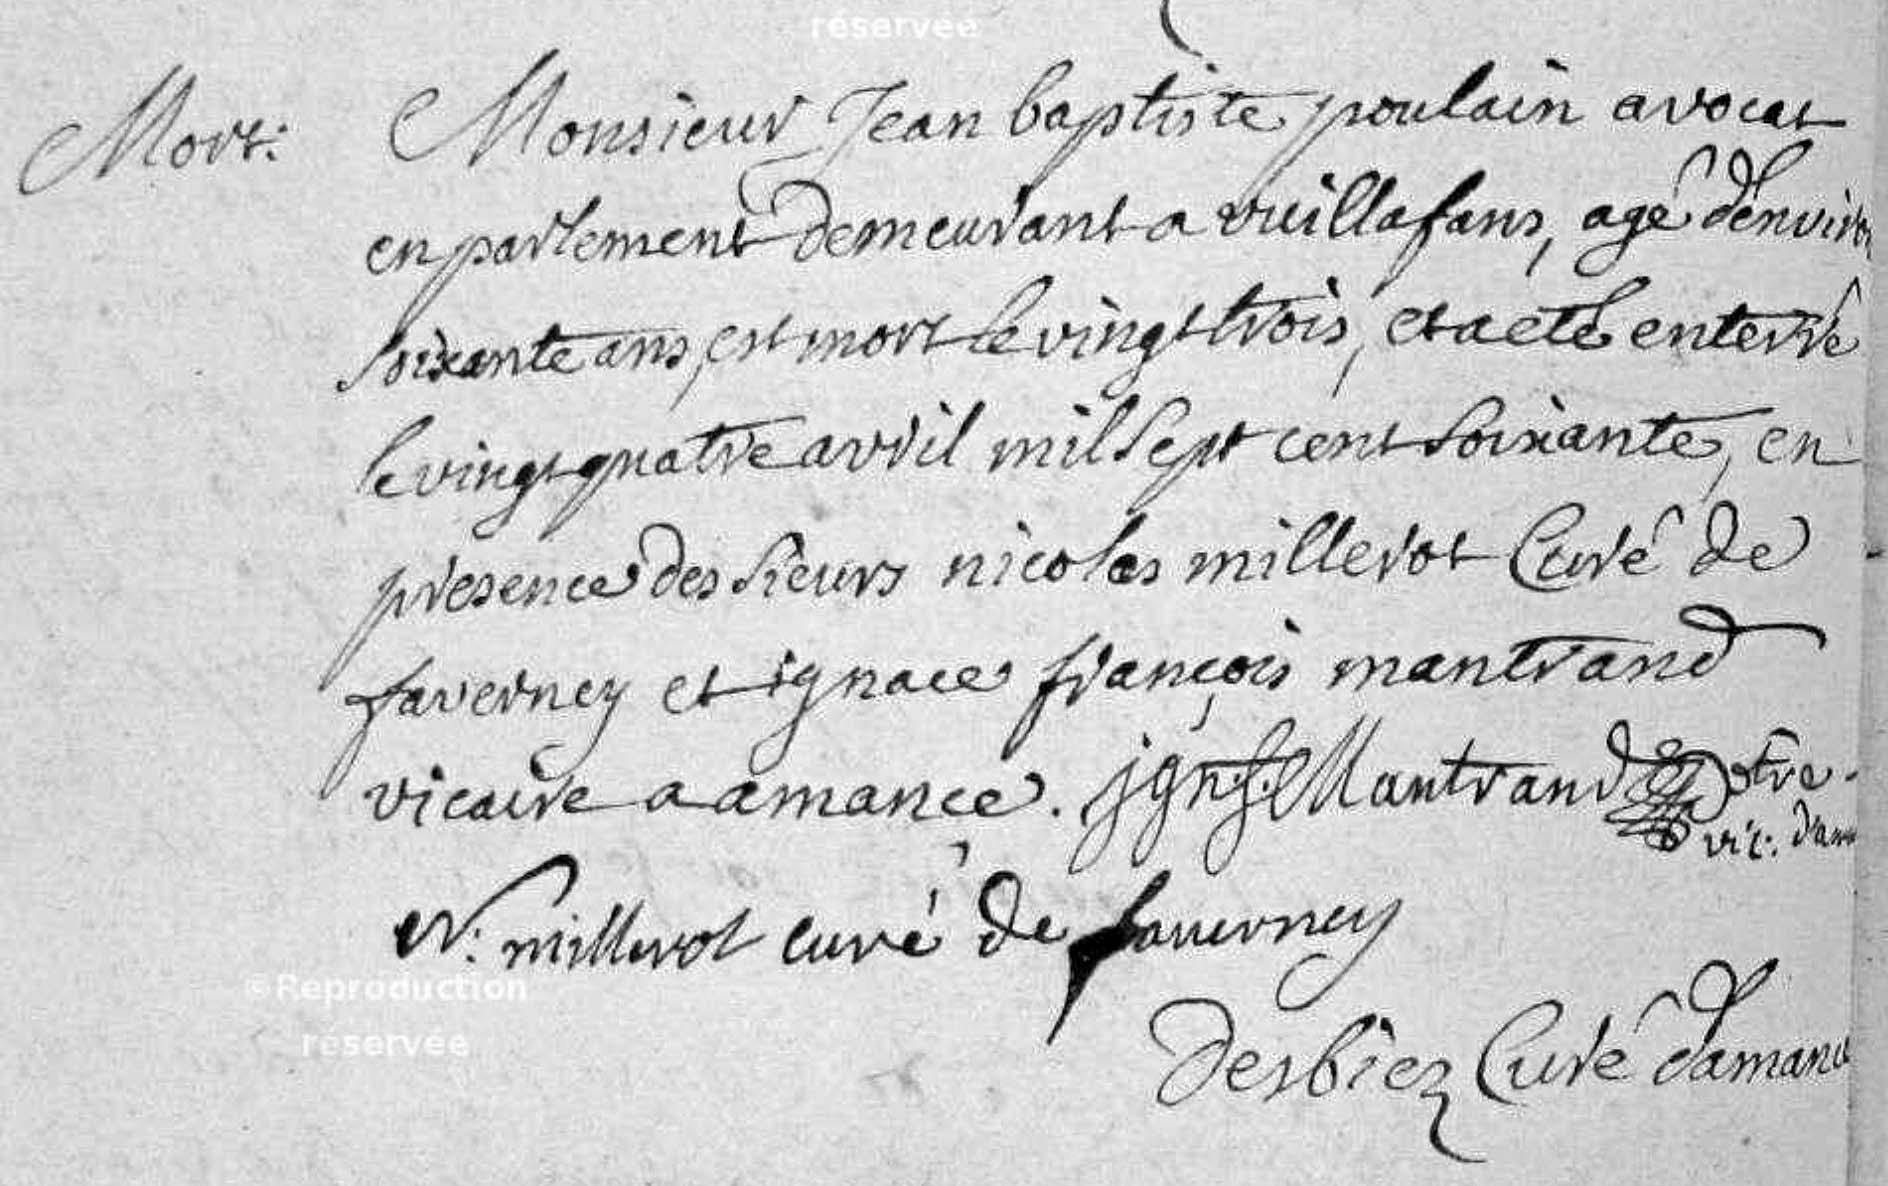 réservée
Mort: Monsieur Jean baptiste poulain avocat
en parlement demeurant a vuillafans, agé d'environ
soixante ans, est mort le vingt trois, et a eté enterré
le vingt quatre avril mil sept cent soixante, en
presence des sieurs nicolas millerot Curé de
faverney et ignace françois mantrand
vicaire a amance. jgn. f. Mantrand ptre
vic: d'am
N: millerot curé de fauverney
©Reproduction
réservée
Desbiez Curé d'amance